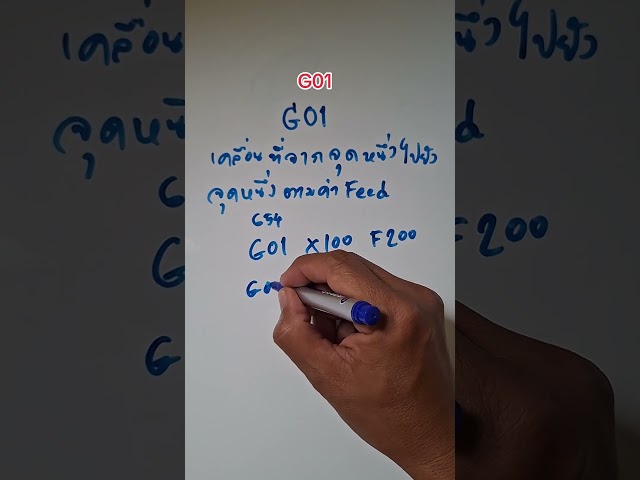 G01
G01
เคลื่อนที่จากจุดหนึ่งไปยัง
จุดหนึ่ง ตามค่า Feed
G54
G01 X100 F200
G0